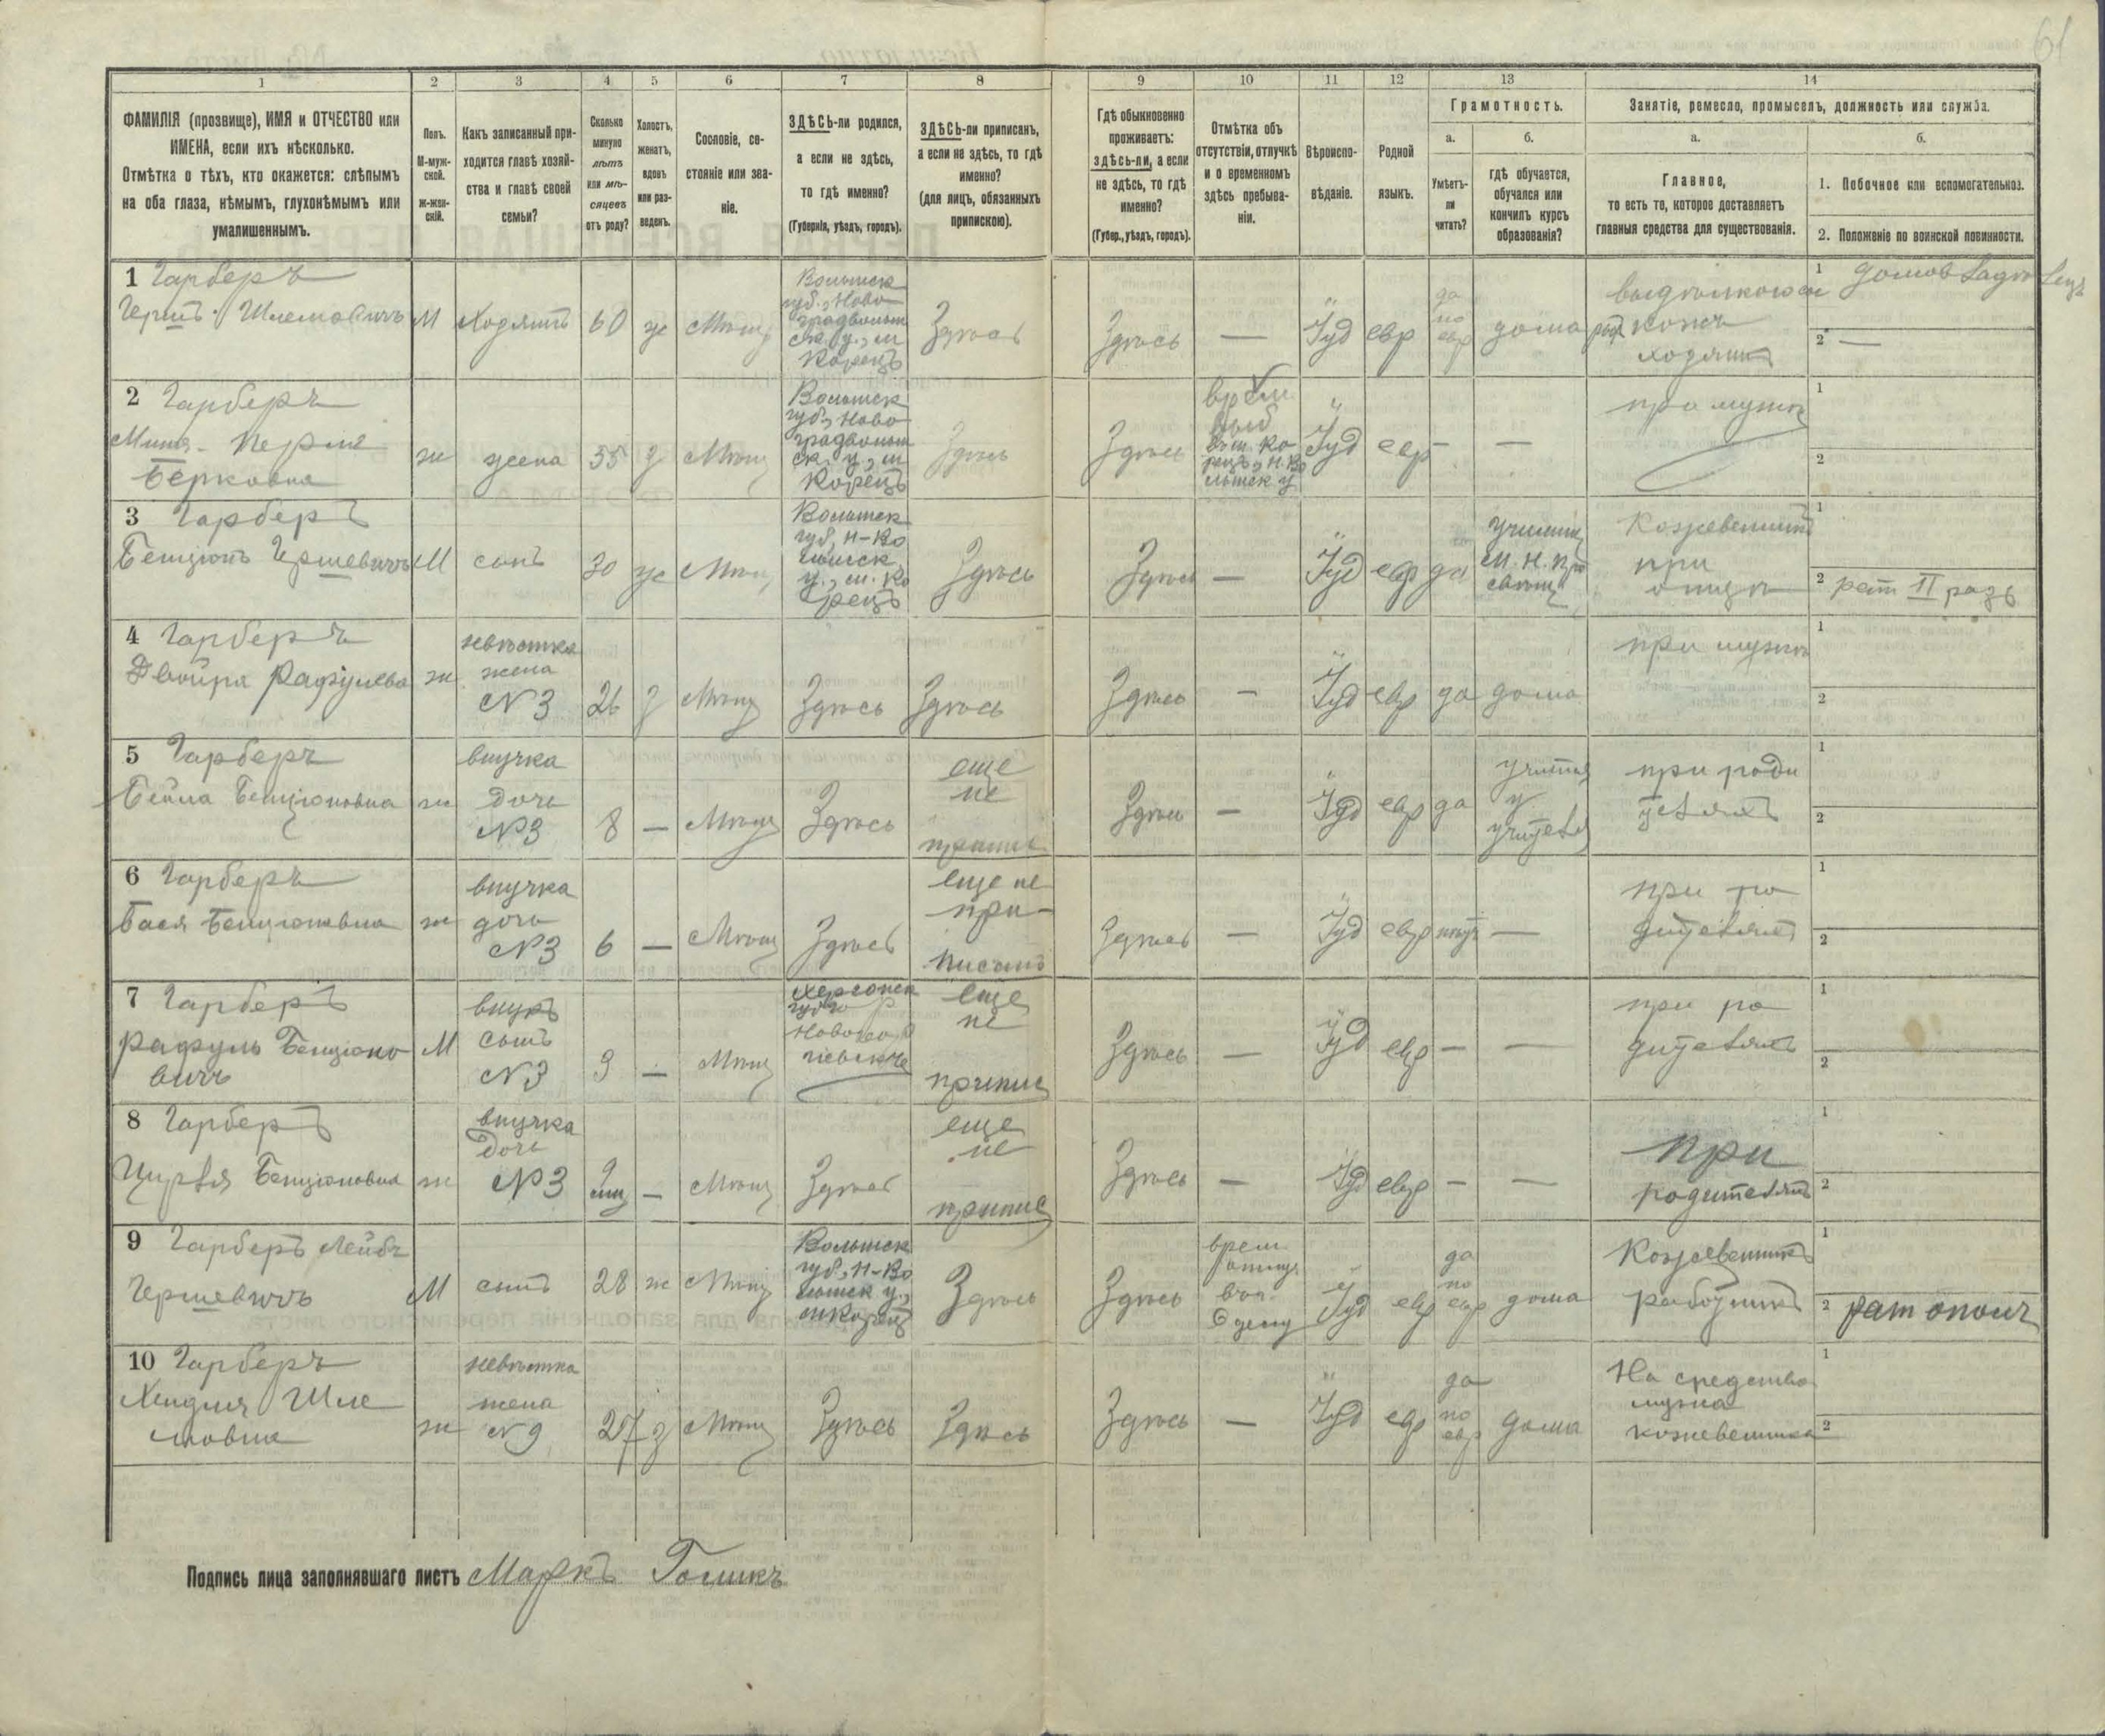 61
1 2 3 4 5 6 7 8 9 10 11 12 13 14
ФАМИЛІЯ (прозвище), ИМЯ и ОТЧЕСТВО или
ИМЕНА, если ихъ нѣсколько.
Отмѣтка о тѣхъ, кто окажется: слѣпымъ
на оба глаза, нѣмымъ, глухонѣмымъ или
умалишеннымъ.
Полъ.
М-муж-
ской.
ж-жен-
скій.
Какъ записанный при-
ходится главѣ хозяй-
ства и главѣ своей
семьи?
Сколько
минуло
лѣтъ
или мѣ-
сяцевъ
отъ роду?
Холостъ,
женатъ,
вдовъ
или раз-
веденъ.
Сословіе, со-
стояніе или зва-
ніе.
ЗДѢСЬ-ли родился,
а если не здѣсь,
то гдѣ именно?
(Губернія, уѣздъ, городъ).
ЗДѢСЬ-ли приписанъ,
а если не здѣсь, то гдѣ
именно?
(для лицъ, обязанныхъ
припискою).
Гдѣ обыкновенно
проживаетъ:
здѣсь-ли, а если
не здѣсь, то гдѣ
именно?
(Губер., уѣздъ, городъ).
Отмѣтка объ
отсутствіи, отлучкѣ
и о временномъ
здѣсь пребыва-
ніи.
Вѣроиспо-
вѣданіе.
Родной
языкъ.
Грамотность.
а.
Умѣетъ-
ли
читать?
б.
гдѣ обучается,
обучался или
кончилъ курсъ
образованія?
Занятіе, ремесло, промыселъ, должность или служба.
а.
Главное,
то есть то, которое доставляетъ
главныя средства для существованія.
б.
1. Побочное или вспомогательное.
2. Положеніе по воинской повинности.
1 Гарберъ
Гершъ Шлемовичъ
М
Хозяинъ
60
ж
Мѣщ
Волынск
губ., Ново
градволын
ск. у., м
Корецъ
Здѣсь
Здѣсь
—
Іуд
евр
да
по
евр
дома
кожъ
хозяинъ
1
2 —
2 Гарберъ
Перля
Берковна
ж
жена
55
з
Мѣщ
Волынск
губ., Ново
градволын
ск. у., м
Корецъ
Здѣсь
Здѣсь
Іуд
евр
—
—
при мужѣ
1
2
3 Гарберъ
Бенціонъ Гершевичъ
М
сынъ
30
ж
Мѣщ
Волынск
губ., Н-Во
лынск
у., м. Ко
рецъ
Здѣсь
Здѣсь
—
Іуд
евр
да
училищ
М. Н. Про
свѣщ
Кожевникъ
при
отцѣ
1
2 рат II разъ
4 Гарберъ
Двойра Рафулева
ж
невѣстка
жена
№ 3
26
з
Мѣщ
Здѣсь
Здѣсь
Здѣсь
—
Іуд
евр
да
дома
при мужѣ
1
2
5 Гарберъ
Бейла Бенціоновна
ж
внучка
дочь
№ 3
8
—
Мѣщ
Здѣсь
еще
не
припис
Здѣсь
—
Іуд
евр
да
учится
у
учителя
при роди
теляхъ
1
2
6 Гарберъ
Бася Бенціоновна
ж
внучка
дочь
№ 3
6
—
Мѣщ
Здѣсь
еще не
при-
писана
Здѣсь
—
Іуд
евр
—
при ро
дителяхъ
1
2
7 Гарберъ
Рафуль Бенціоно
вичъ
М
внукъ
сынъ
№ 3
3
—
Мѣщ
Херсонск
еще
не
припис
Здѣсь
—
Іуд
евр
—
—
при ро
дителяхъ
1
2
8 Гарберъ
Цирля Бенціоновна
ж
внучка
Дочь
№ 3
9
мѣц
—
Мѣщ
Здѣсь
еще
не
припис
Здѣсь
—
Іуд
евр
—
—
при
родителяхъ
1
2
9 Гарберъ Лейбъ
Гершевичъ
М
сынъ
28
ж
Мѣщ
Волынск
губ., Н-Во
лынск у.,
м Корецъ
Здѣсь
Здѣсь
Іуд
евр
да
по
евр
дома
Кожевникъ
работникъ
1
2 рат ополч
10 Гарберъ
Хиндля Шле
мовна
ж
невѣстка
жена
№ 9
27
з
Мѣщ
Здѣсь
Здѣсь
Здѣсь
—
Іуд
евр
да
по
евр
дома
На средства
мужа
кожевника
1
2
Подпись лица заполнявшаго листъ Маркъ